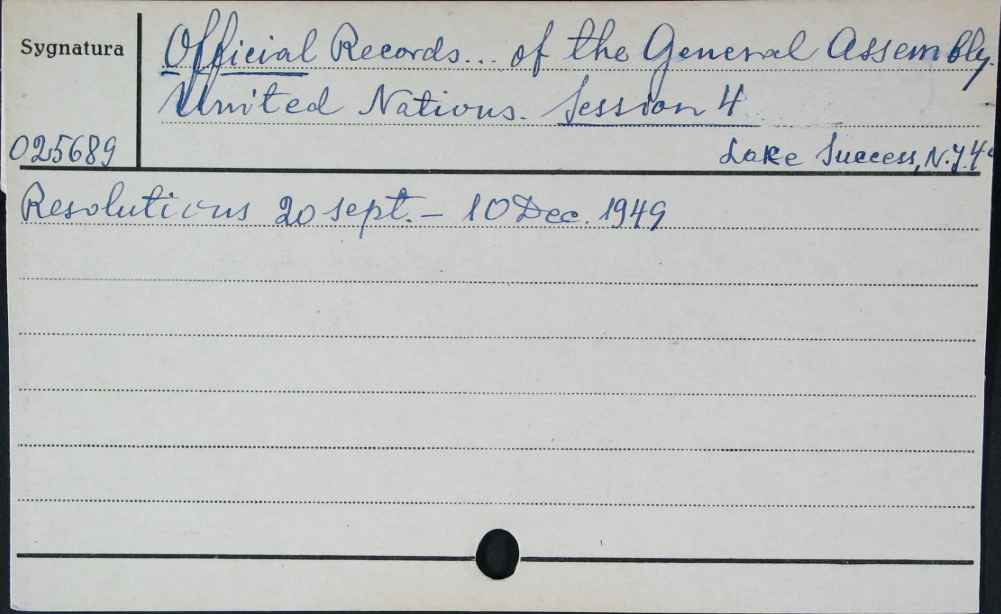 Sygnatura
Official Records... of the General Assembly.
United Nations. Session 4
025689
Lake Success, N.Y. 4°
Resolutions 20 sept. – 10 Dec. 1949